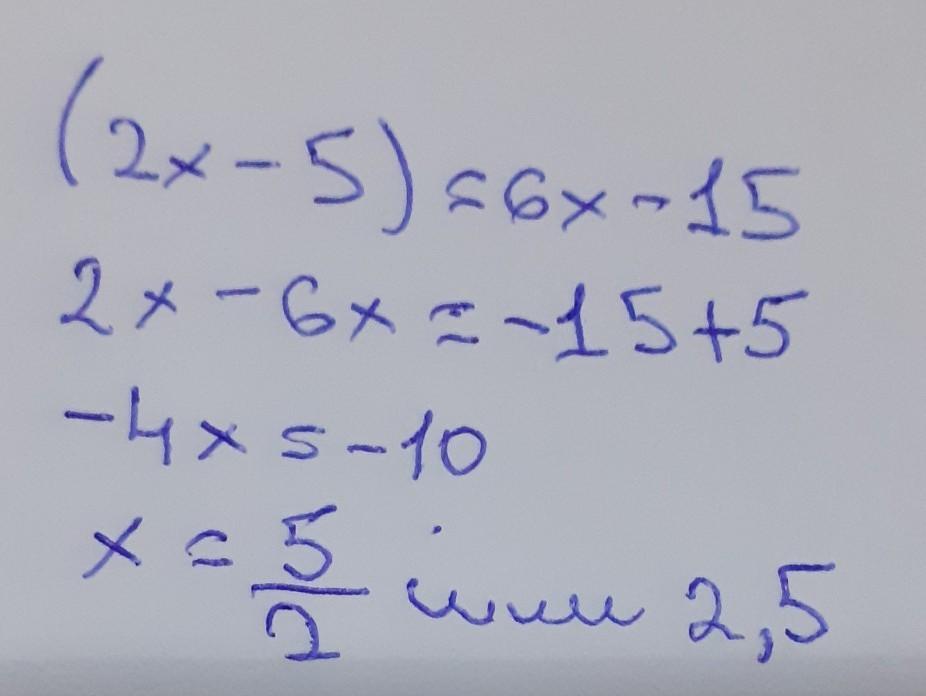 (2x-5)=6x-15
2x-6x=-15+5
-4x=-10
x=5/2 или 2,5